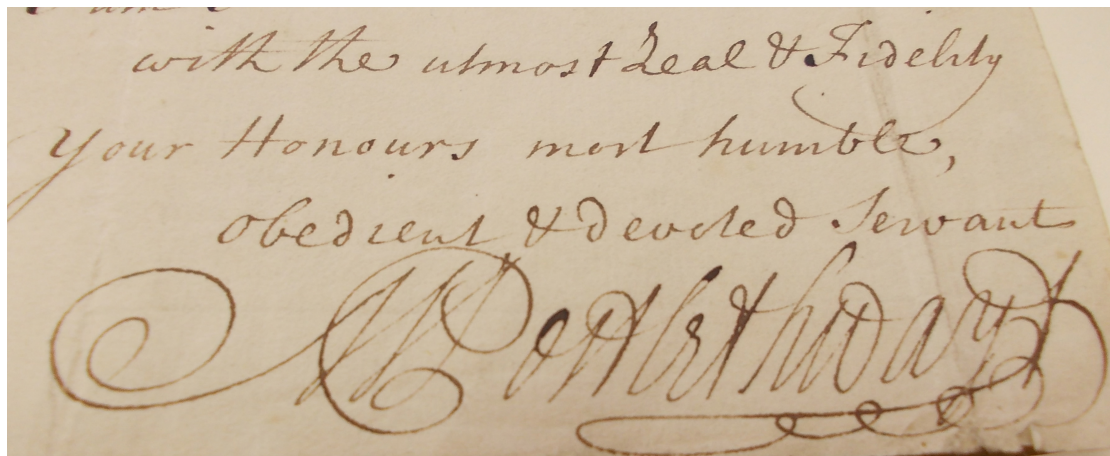 with the utmost Zeal & Fidelity
Your Honours most humble,
obedient & devoted Servant
M Postlethwayt